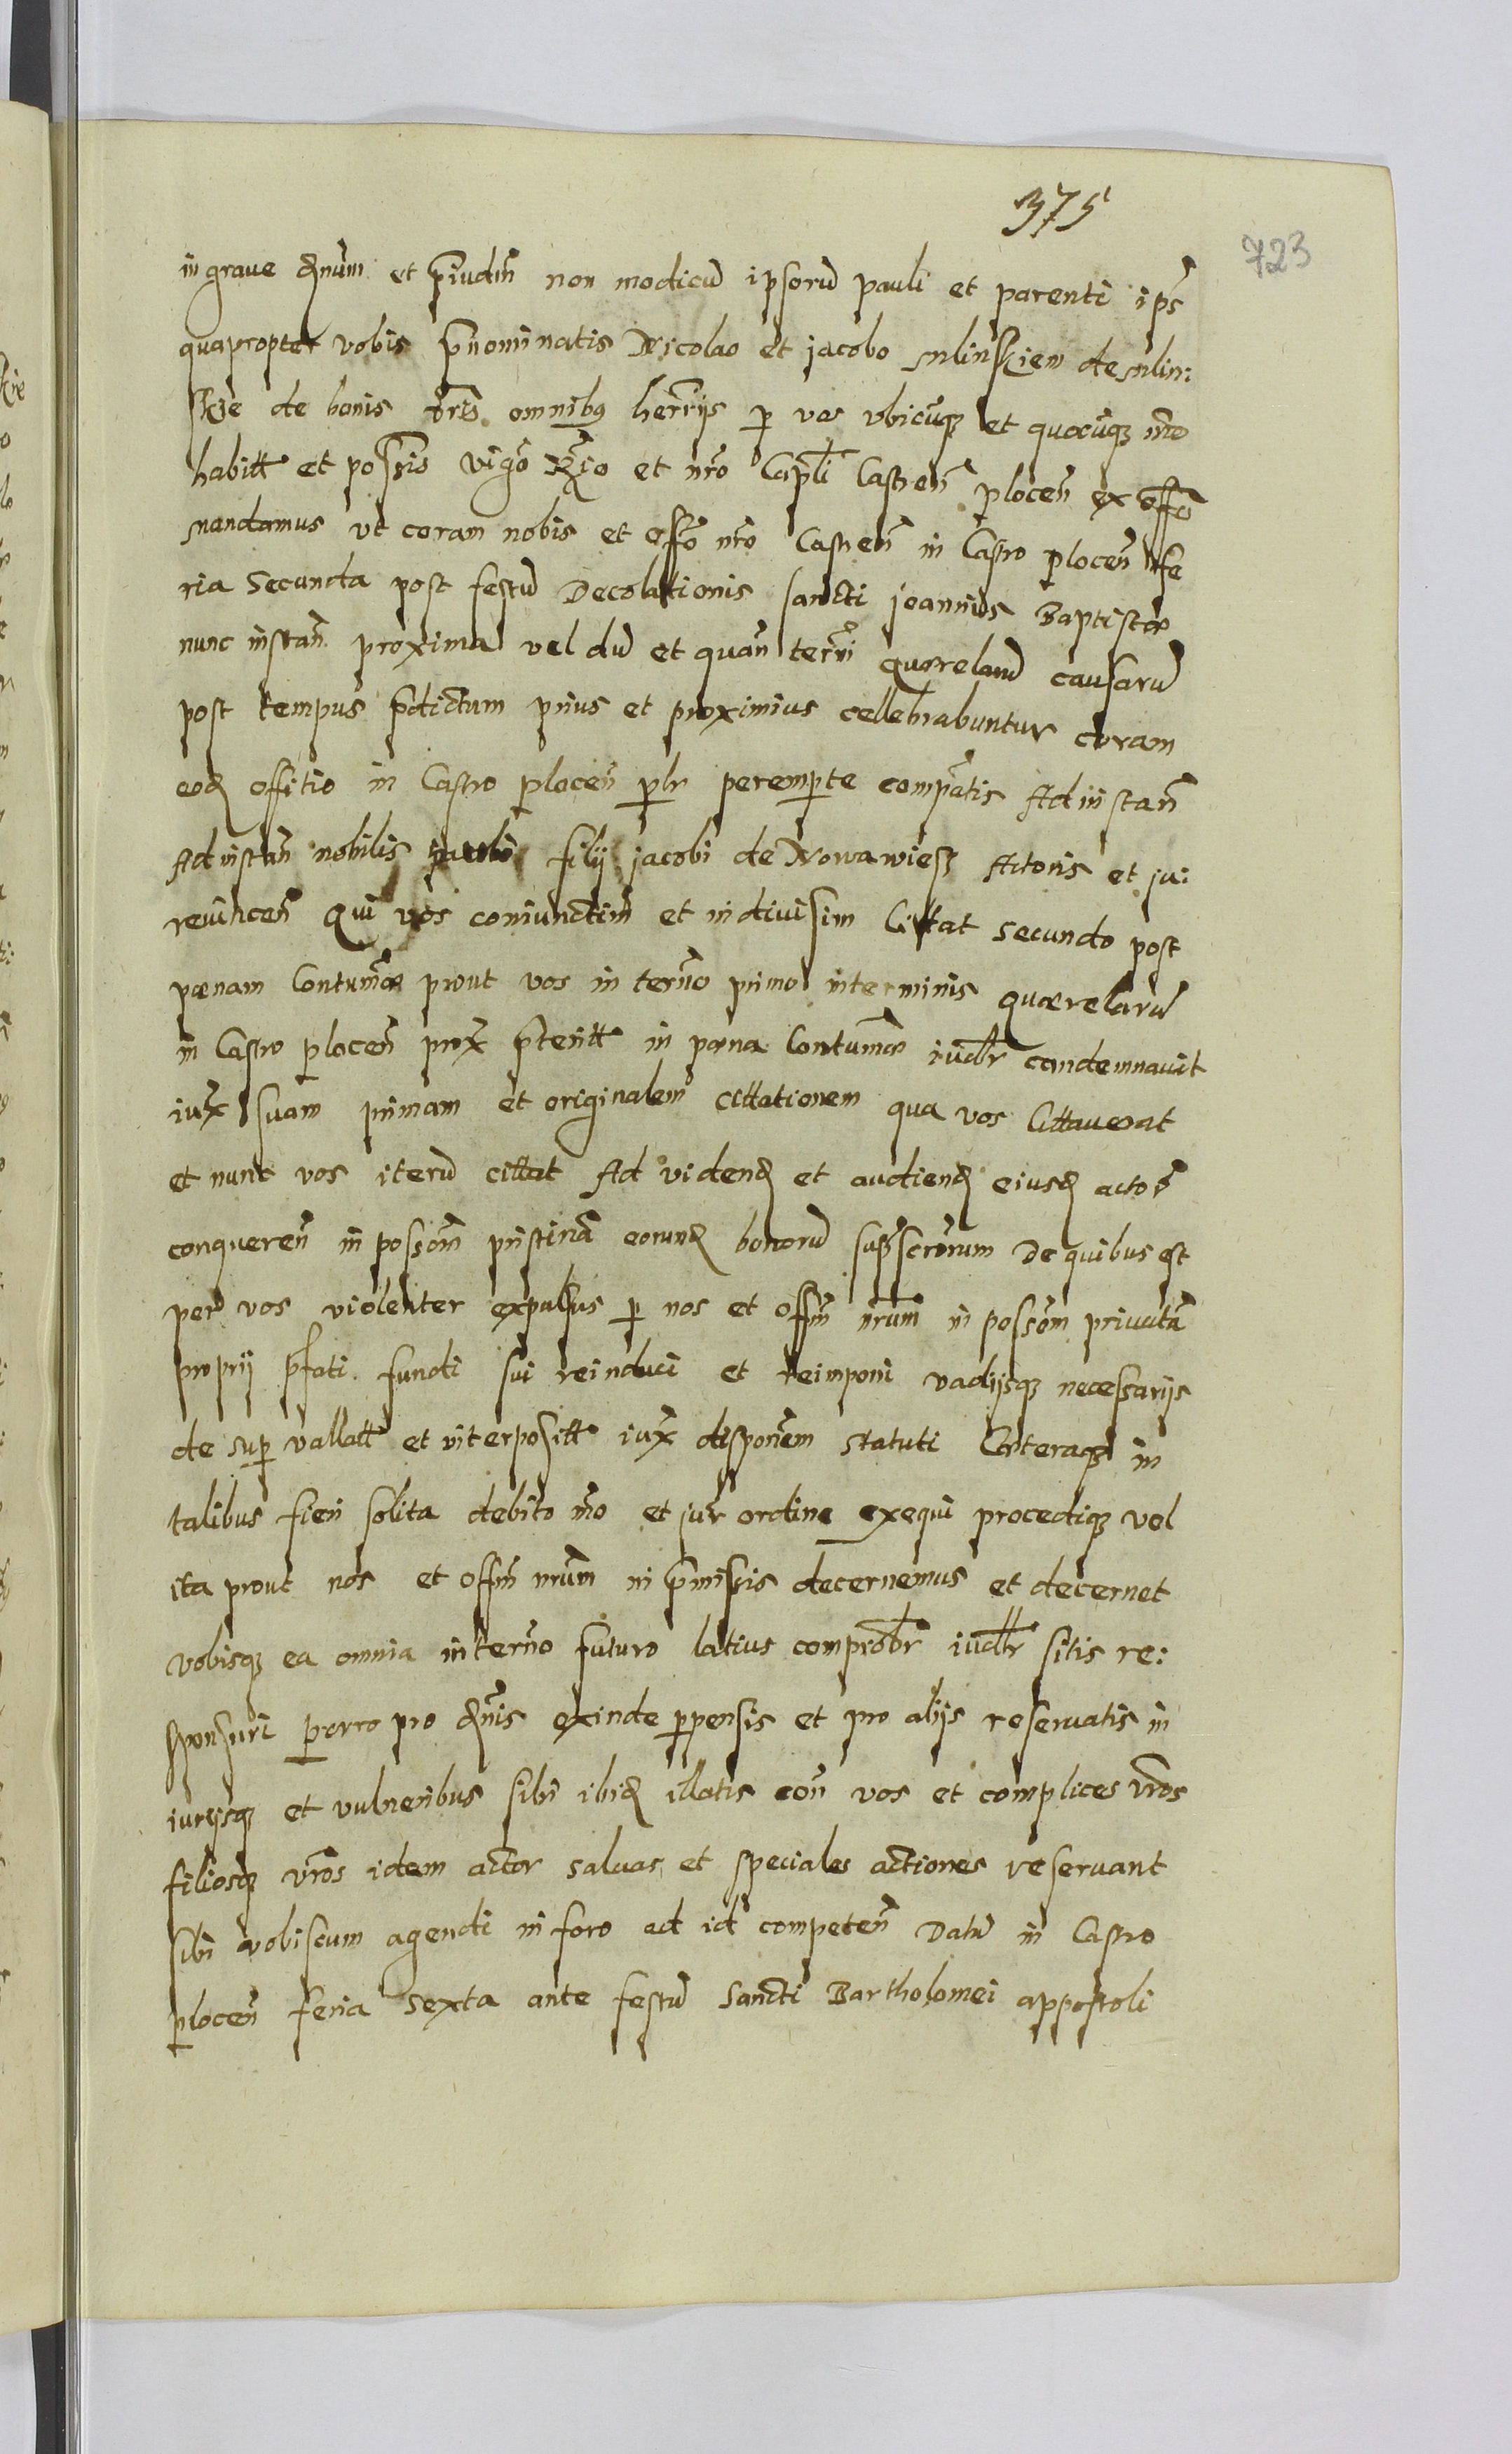 375
723
in graue dnum et piudm non modicu ipsoru pauli et parenti ips
quapropter vobis pnominatis Nicolao et jacobo mlinskiem de mlin:
skie de bonis vris omnibus herrijs p vos vbicuq et quocuq mo
habitt et possis vigo Rio et nro Capli Castren plocen ex offo
mandamus vt coram nobis et offo nro Castren in Castro plocen fe
ria Secunda post festu Decolationis sancti joannis Baptistæ
nunc instan proxima vel du et quan termi quærelaru causaru
post tempus pdictum prius et proximius cellebrabuntur coram
eod offitio in Castro plocen plr perempte compatis Ad instan
Ad instan nobilis pauli filij jacobi de Nowawiesz Actoris et ju:
reuincen qui vos coniunctim et indiuisim Cittat secundo post
pænam Contumæ prout vos in termo primo in terminis quærelaru
in Castro plocen prox pteritt in pæna Contumæ iudlr condemnauit
iux suam primam et originalem cittationem qua vos Cittauerat
et nunc vos iteru cittat Ad vidend et audiend eiusd actor
conqueren in possom pristina eorund bonoru supscrorum De quibus est
per vos violenter expulsus p nos et offm nrum in possom priuata
proprij pfati fundi sui reinduci et reimponi vadijsq necessarijs
de sup vallatt et interpositt iux disponem statuti Cæteraq in
talibus fieri solita debito mo et jur ordine exequi procediq vel
ita prout nos et offm nrum in pmissis decernemus et decernet
vobisq ea omnia in termo futuro latius comprobr iudlr sitis re:
sponsuri porro pro dnis exinde ppensis et pro alijs reseruatis in
iurijsq et vulneribus sibi ibid illatis con vos et complices vros
filiosq vros idem actor saluas et speciales actiones reseruant
sibi vobiscum agendi in foro ad id competen Datu in Castro
plocen feria sexta ante festu Sancti Bartholomei appostoli